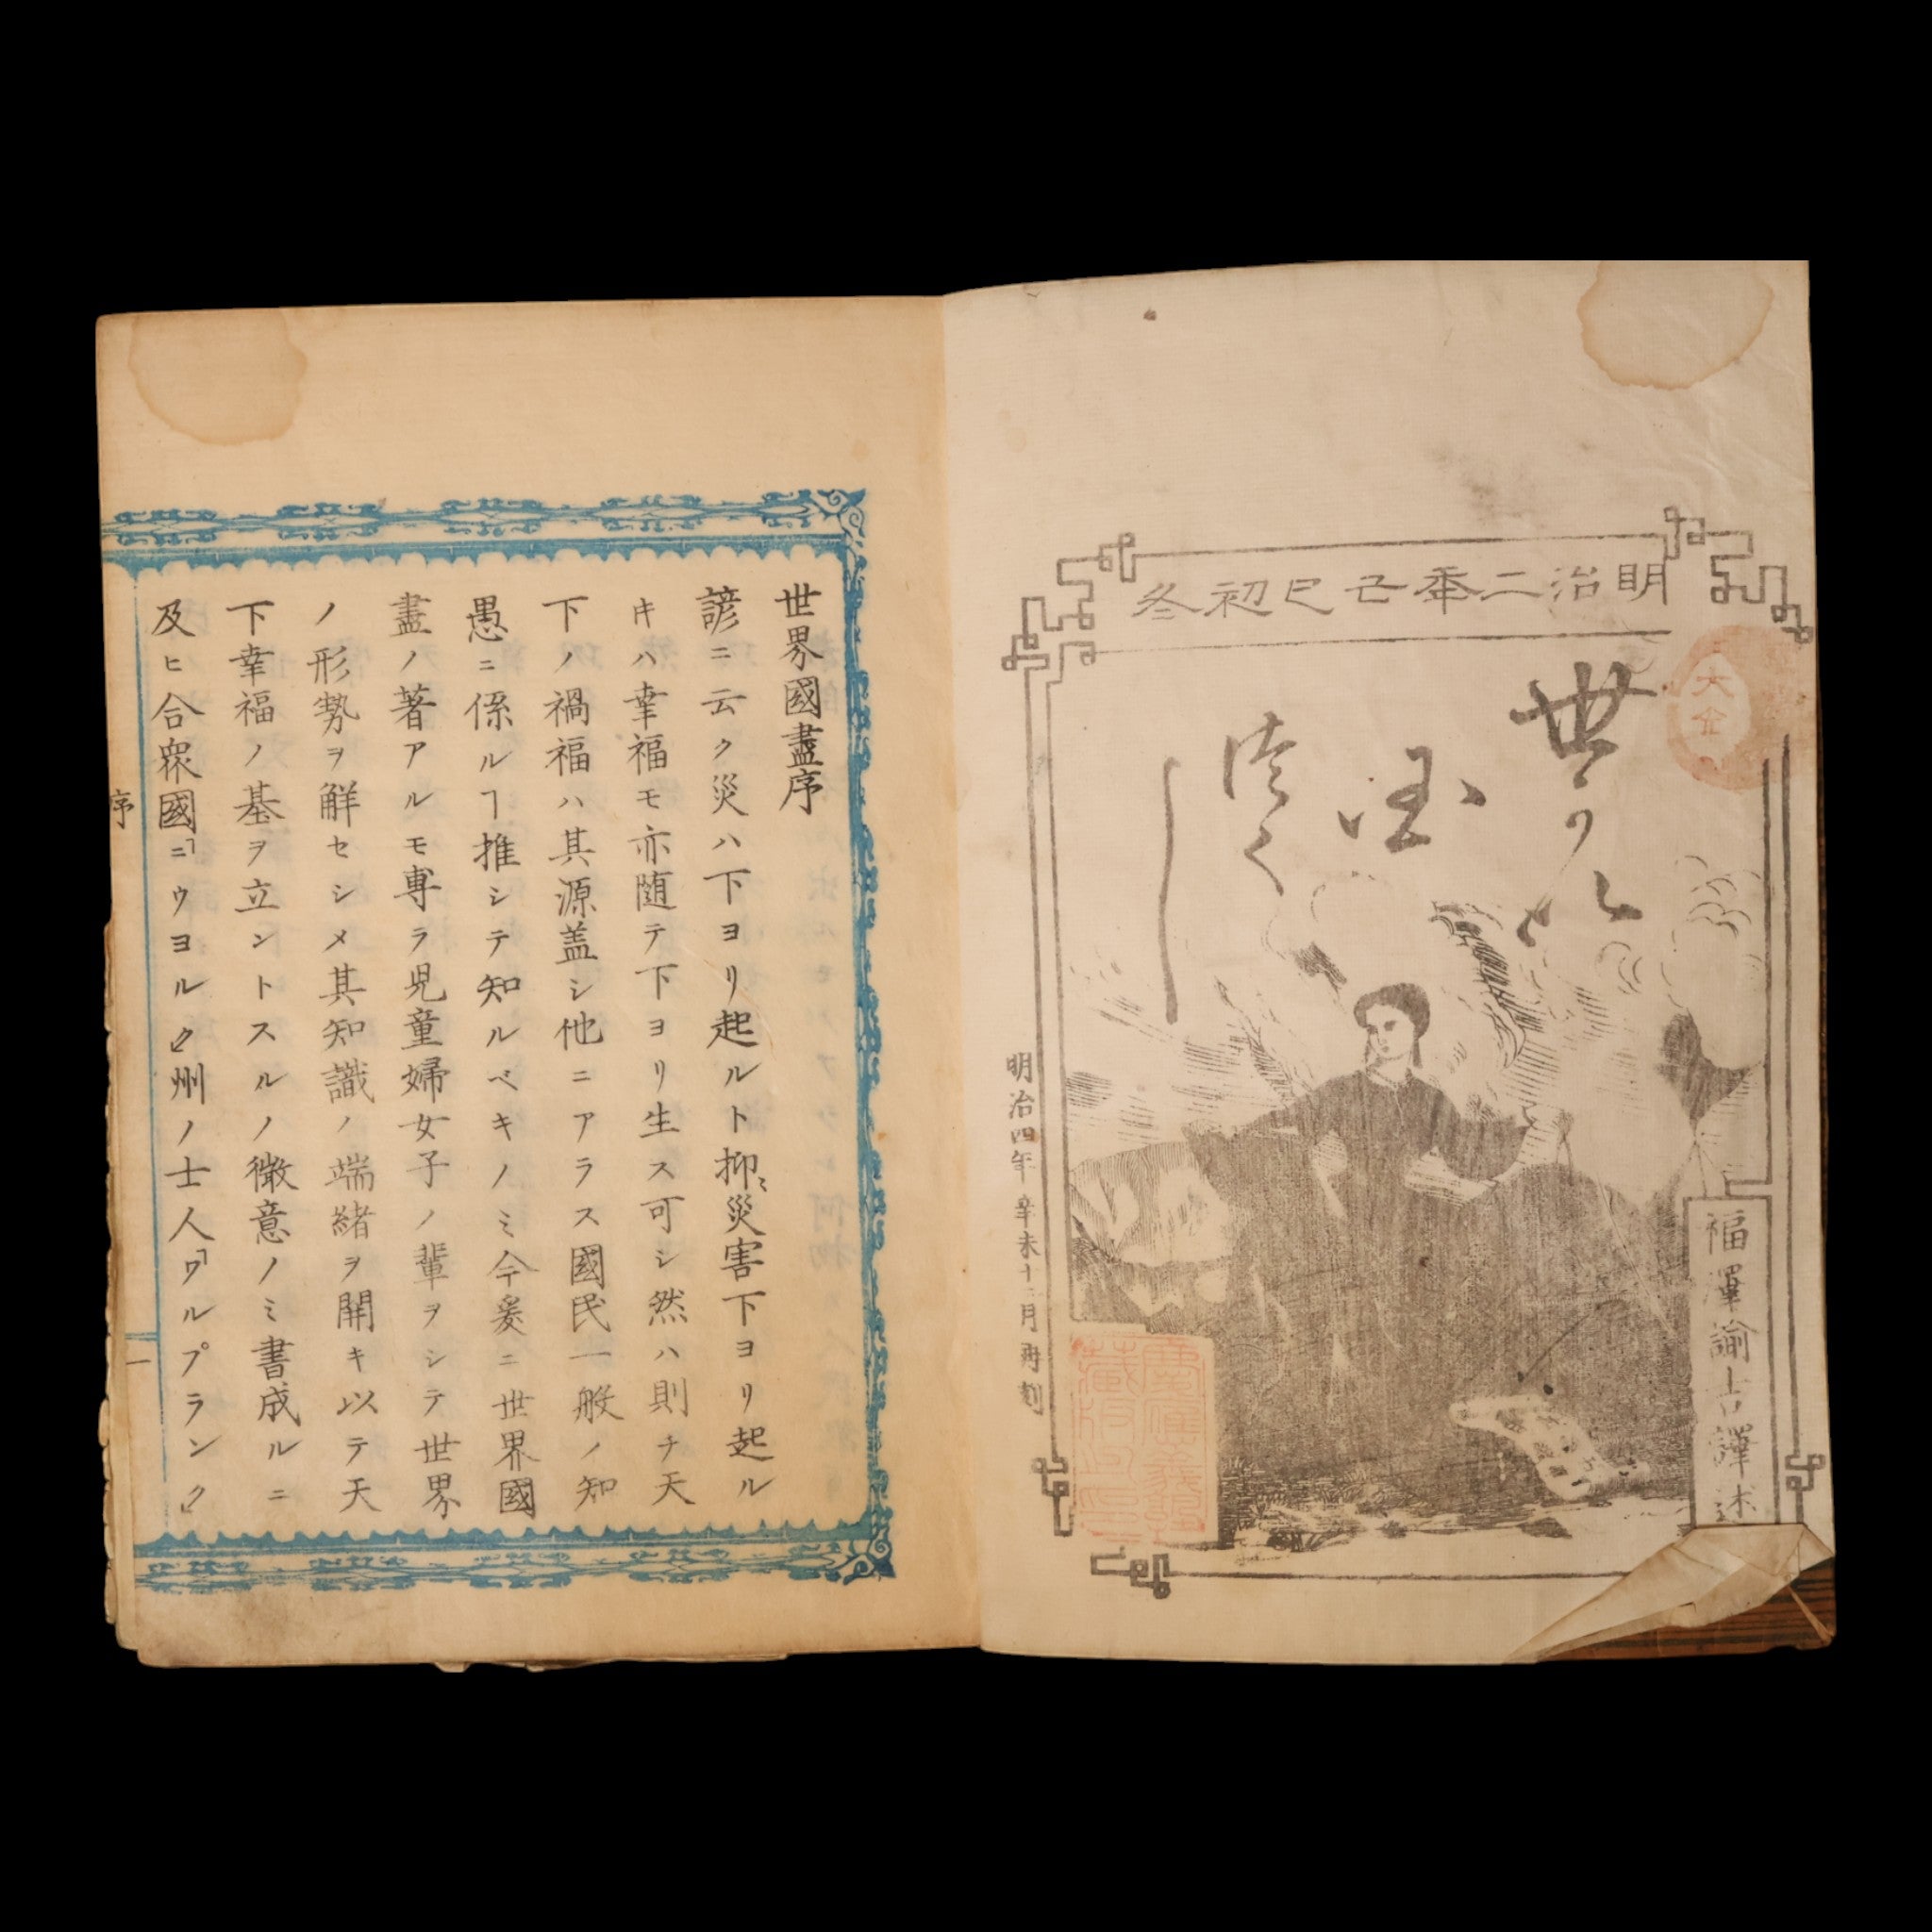 明治二年己巳初冬
世界
国
尽し
福澤諭吉譯述
明治四年辛未十二月再刻
慶應義塾
蔵版之印
世界國盡序
諺ニ云ク災ハ下ヨリ起ルト抑〻災害下ヨリ起ル
キハ幸福モ亦随テ下ヨリ生ス可シ然ハ則チ天
下ノ禍福ハ其源盖シ他ニアラス國民一般ノ知
愚ニ係ルヿ推シテ知ルベキノミ今爰ニ世界國
盡ノ著アルモ専ラ児童婦女子ノ輩ヲシテ世界
ノ形勢ヲ解セシメ其知識ノ端緒ヲ開キ以テ天
下幸福ノ基ヲ立ントスルノ微意ノミ書成ルニ
及ヒ合衆國ニウヨルク州ノ士人ワルプランク
序
一